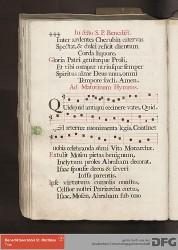 In festo S. P. Benedicti.
Inter ardentes Cherubin catervas
Spectat, & dulci reficit clientum
Corda liquore.
Gloria Patri genitæque Proli,
Et tibi compar utriusque semper
Spiritus alme Deus unus, omni
Tempore sæcli. Amen.
Ad Matutinum Hymnus.
Quidquid antiqui cecinere vates, Quid-
quid æternæ monimenta legis, Continet
nobis celebranda summi Vita Monarchæ.
Extulit Moysen pietas benignum,
Inclytum proles Abraham decorat,
Isaac sponsæ decus & severi
Jussa parentis.
Ipse virtutum cumulis onustus,
Celsior nostri Patriarcha cœtus,
Isaac, Moysen, Abraham sub uno
DFG